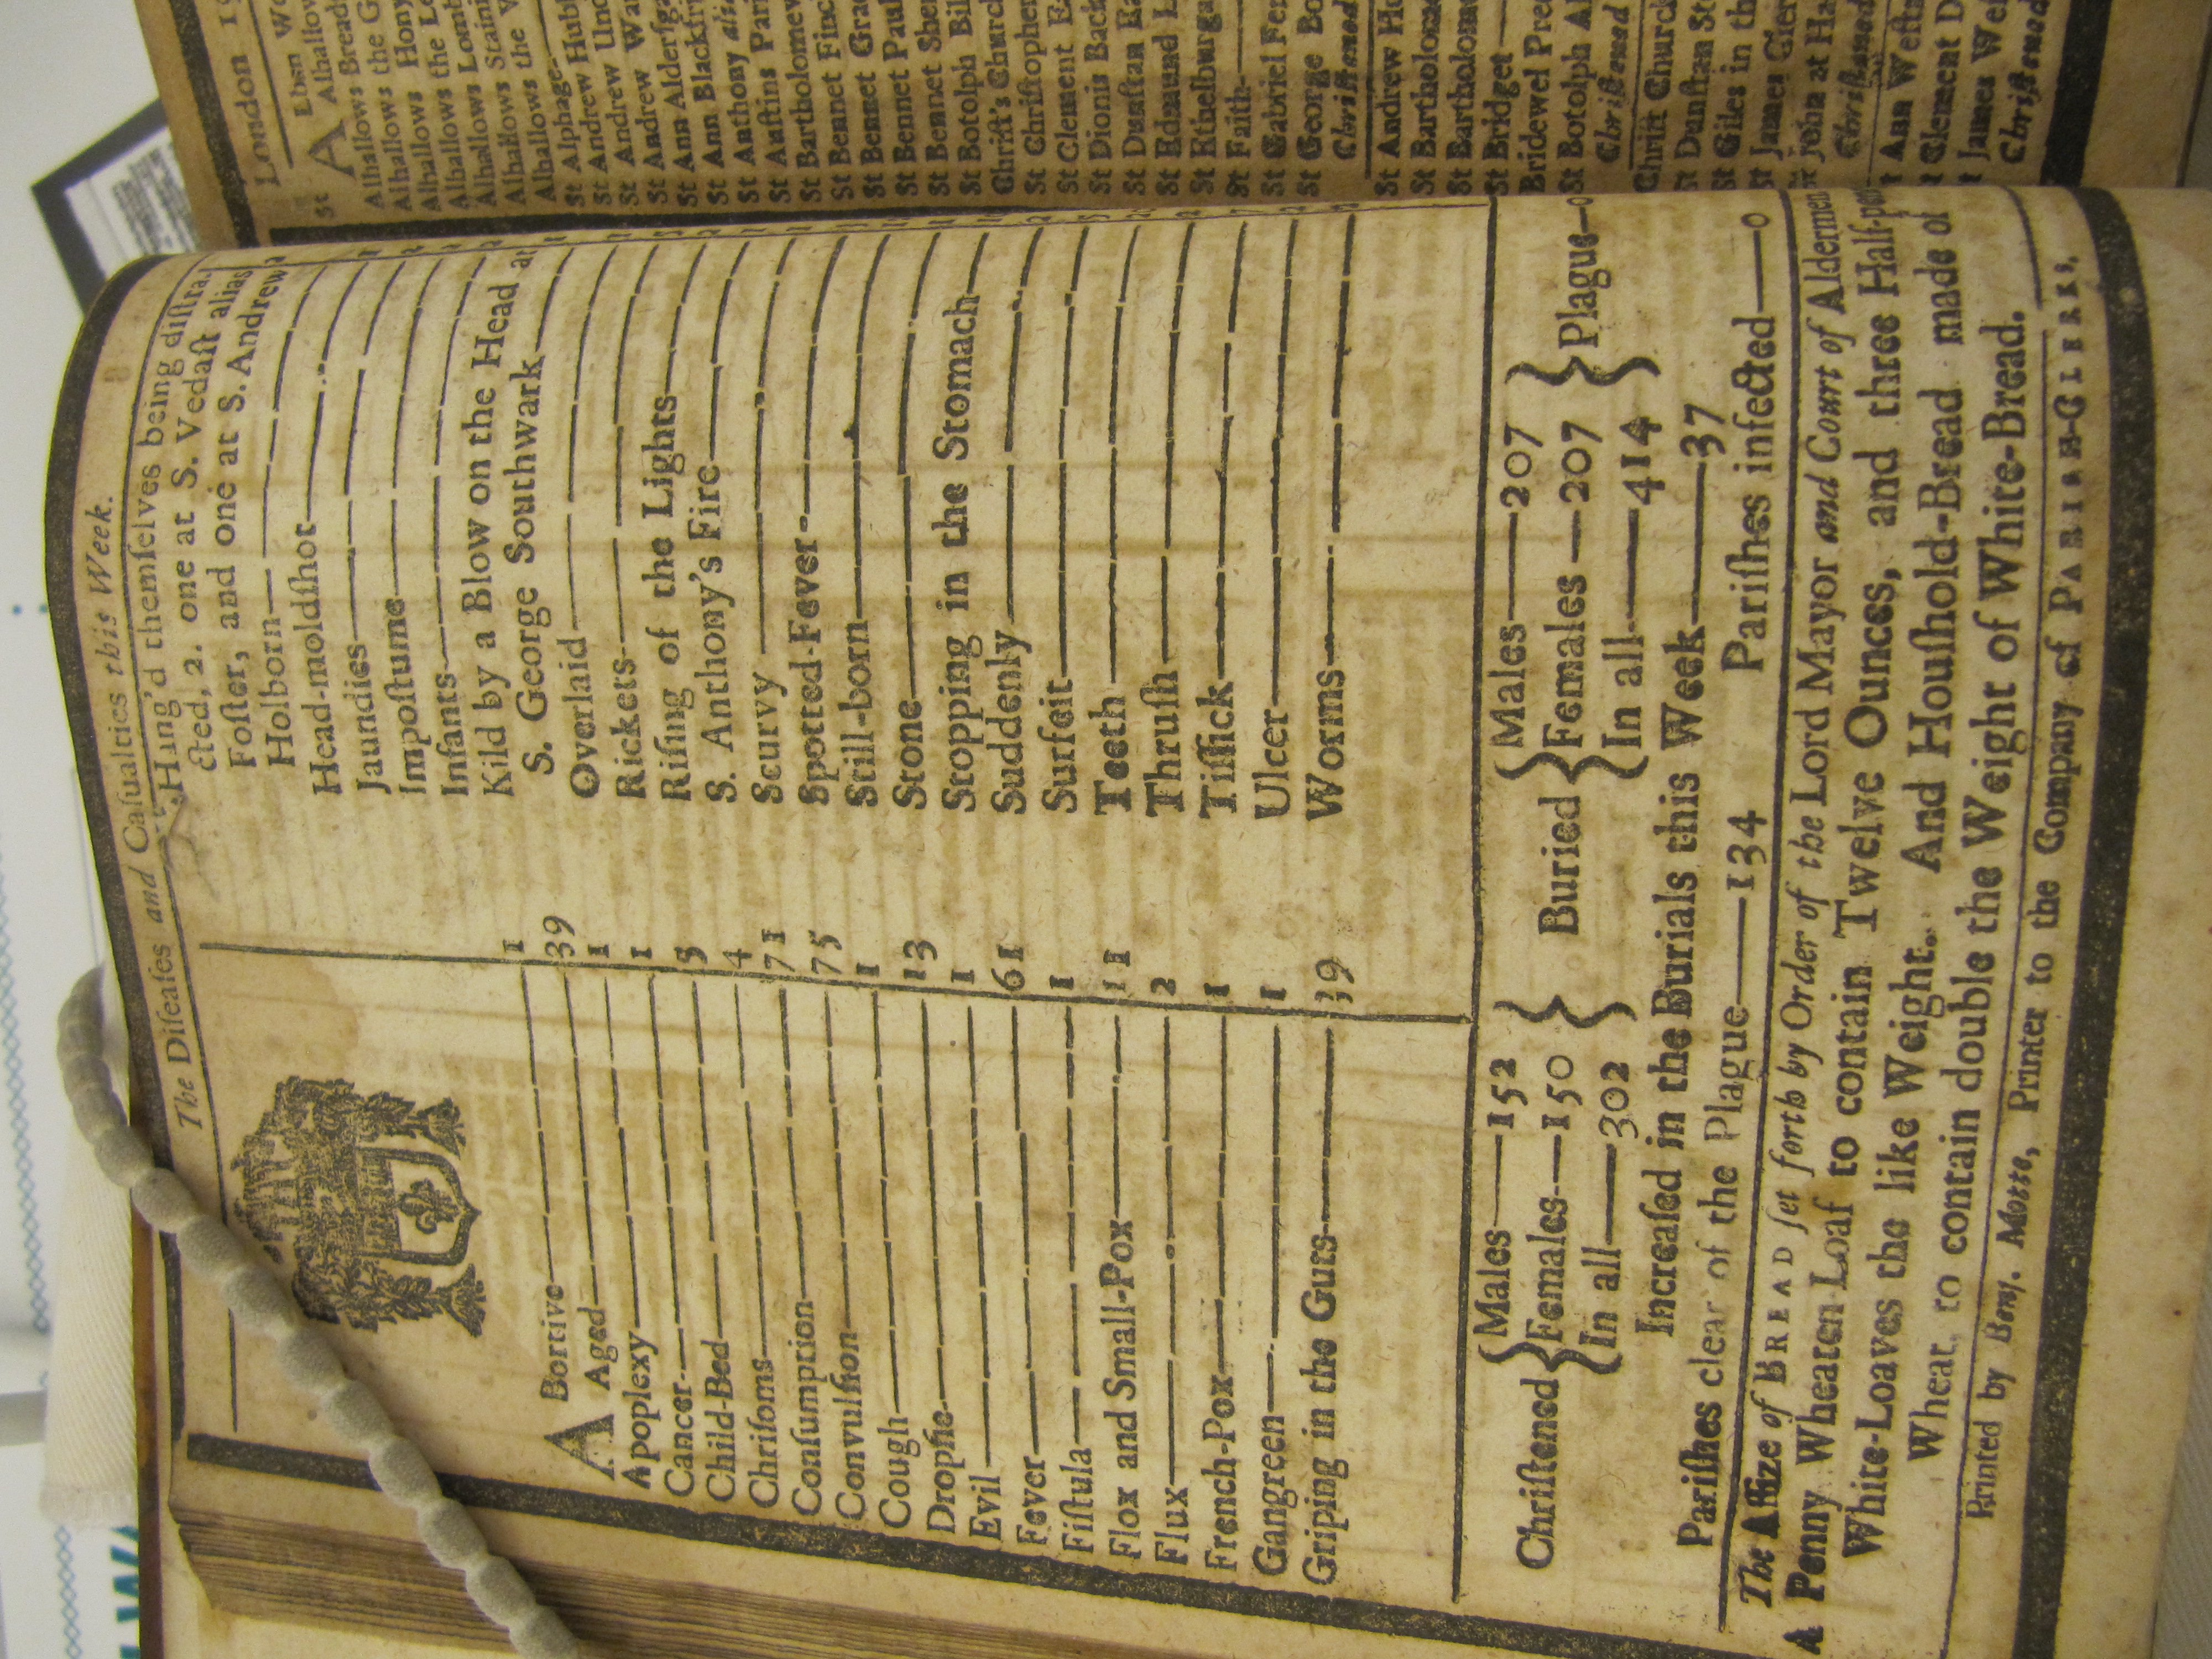 The Diſeaſes and Caſualties this Week.
ABortive 1
Aged 39
Apoplexy 1
Cancer 1
Child-Bed 5
Chriſoms 4
Conſumption 71
Convulſion 75
Cough 1
Dropſie 13
Evil 1
Fever 61
Fiſtula 1
Flox and Small-Pox 11
Flux 2
French-Pox 1
Gangreen 1
Griping in the Guts 39
Hang'd themſelves being diſtra-
cted, 2. one at S. Vedaſt alias
Foſter, and one at S. Andrew
Holborn
Head-moldſhot
Jaundies
Impoſtume
Infants
Kild by a Blow on the Head at
S. George Southwark
Overlaid
Rickets
Riſing of the Lights
S. Anthony's Fire
Scurvy
Spotted-Fever
Still-born
Stone
Stopping in the Stomach
Suddenly
Surfeit
Teeth
Thruſh
Tiſſick
Ulcer
Worms
Chriſtened { Males 152 Females 150 In all 302 } Buried { Males 207 Females 207 In all 414 } Plague 0
Increaſed in the Burials this Week 37
Pariſhes clear of the Plague 134 Pariſhes infected 0
The Aſſize of BREAD ſet forth by Order of the Lord Mayor and Court of Aldermen
A Penny Wheaten Loaf to contain Twelve Ounces, and three Half-penny
White-Loaves the like Weight. And Houſhold-Bread made of
Wheat, to contain double the Weight of White-Bread.
Printed by Benj. Motte, Printer to the Company of PARISH-CLERKS,
London
St ALban
Alhallow
Alhallows Bread
Alhallows the G
Alhallows Hony
Alhallows the Le
Alhallows Lomb
Alhallows Staini
Alhallows the
St Alphage
St Andrew Hub
St Andrew Und
St Andrew War
St Ann Alderſga
St Ann Blackfr
St Anthony
St Auſtins Pari
St Bartholomew
St Bennet Finc
St Bennet Grac
St Bennet Paul
St Bennet Sher
St Botolph Bil
Chriſt's Church
St Chriſtopher
St Clement Ea
St Dionis Back
St Dunſtan Ea
St Edmund L
St Ethelburga
St Faith
St Gabriel Fen
St George Bo
Chriſtened
St Andrew Ho
St Bartholome
St Bartholome
St Bridget
Bridewel Prec
St Botolph Al
Chriſtened
Chriſt Church
St Dunſtan St
St Giles in th
St James Cler
St John at Ha
Chriſtened
St Ann Weſtm
St Clement D
St James Weſ
Chriſtened